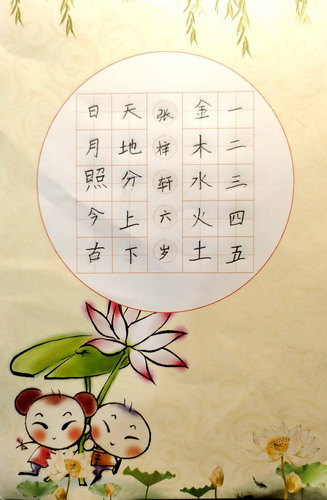 一二三四五
金木水火土
张梓轩六岁
天地分上下
日月照今古